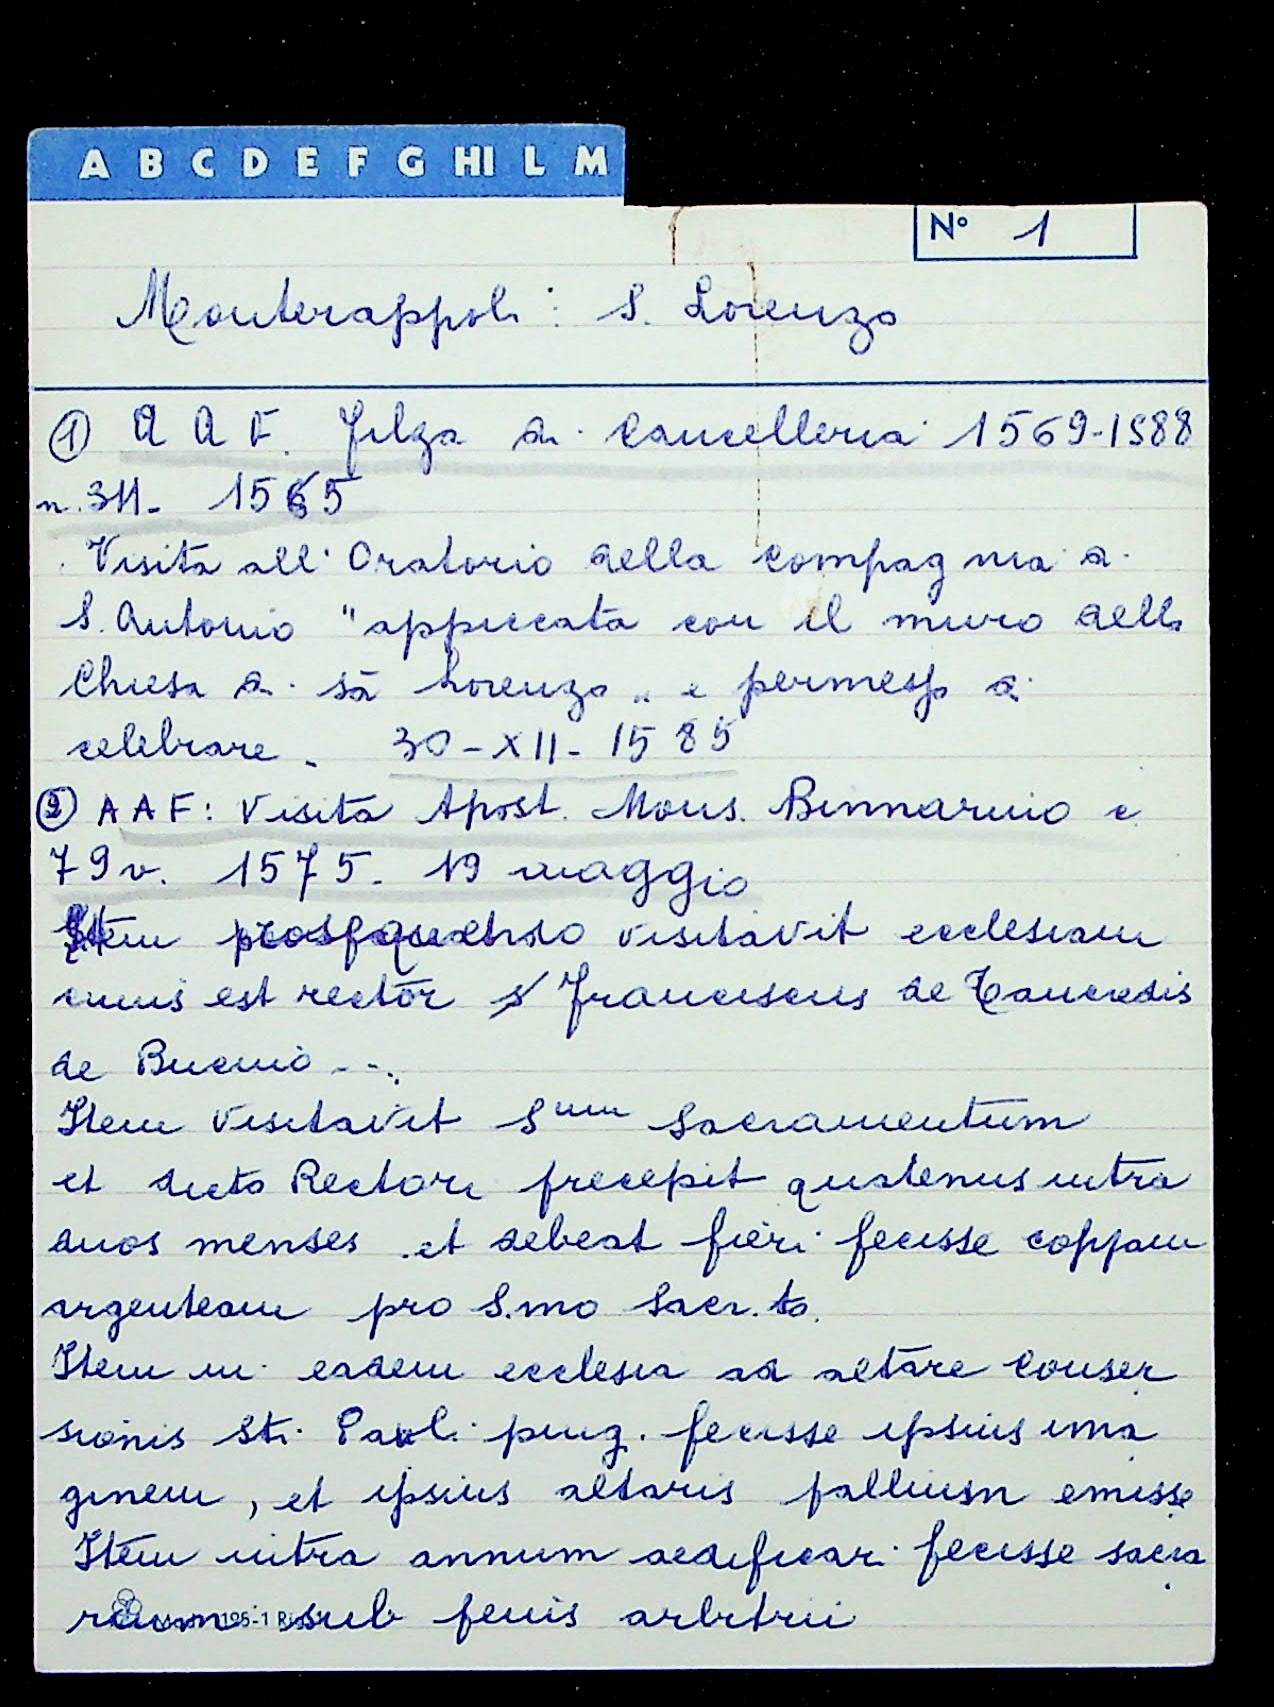 A B C D E F G HI L M
N° 1
Monterappoli: S. Lorenzo
① A A F. Filza di Cancelleria 1569-1588
n. 311- 1565
Visita all'Oratorio della Compagnia di
S. Antonio "appiccata con il muro della
Chiesa di sā Lorenzo" e permesso di
celebrare. 30-XII-1585
② AAF: Visita Apost. Mons. Binnarino c.
79v. 1575. 19 maggio
Item visitavit ecclesiam
cuius est rector Franciscus de Tancredis
de
Item visitavit Smum Sacramentum
et dicto Rectori precepit quatenus intra
duos menses et debeat fieri fecisse coppam
argenteam pro S.mo Sacr.to.
Item in eadem ecclesia ad altare Conver
sionis Sti. Pauli ping. fecisse ipsius ima
ginem, et ipsius altaris pallium emisse
Item intra annum aedificari fecisse sacra
rium sub penis arbitrii